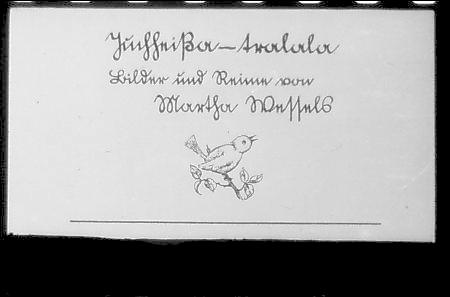 Juchheißa – tralala
Bilder und Reime von
Martha Wessels